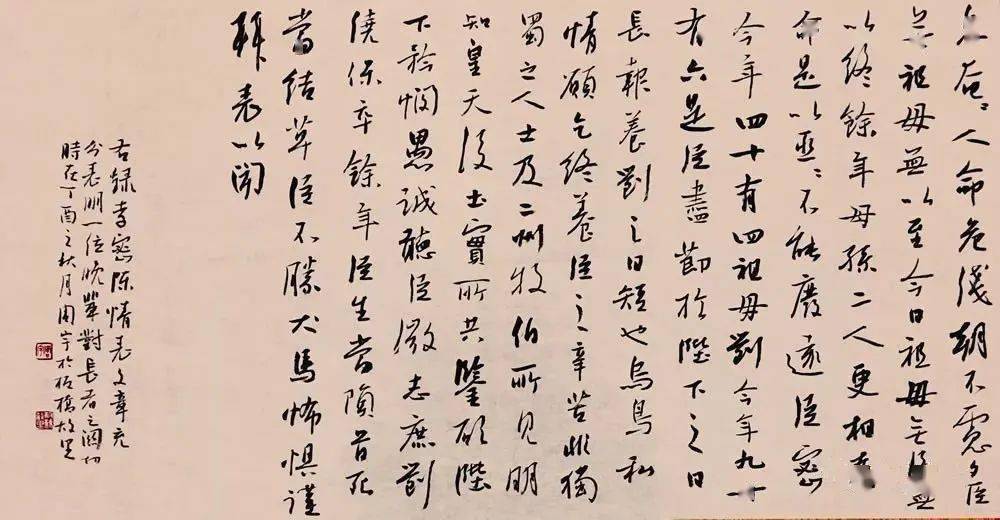 息奄〻人命危淺朝不慮夕臣
無祖母無以至今日祖母無臣無
以終餘年母孫二人更相為
命是以區〻不能廢遠臣密
今年四十有四祖母劉今年九十
有六是臣盡節於陛下之日
長報養劉之日短也烏鳥私
情願乞終養臣之辛苦非獨
蜀之人士及二州牧伯所見明
知皇天後土實所共鑒願陛
下矜憫愚誠聽臣微志庶劉
僥保卒餘年臣生當隕首死
當結草臣不勝犬馬怖懼謹
拜表以聞
右錄李密陳情表文章充
分表明一位晚輩對長者之關切
時在丁酉之秋月周宇於板橋故里